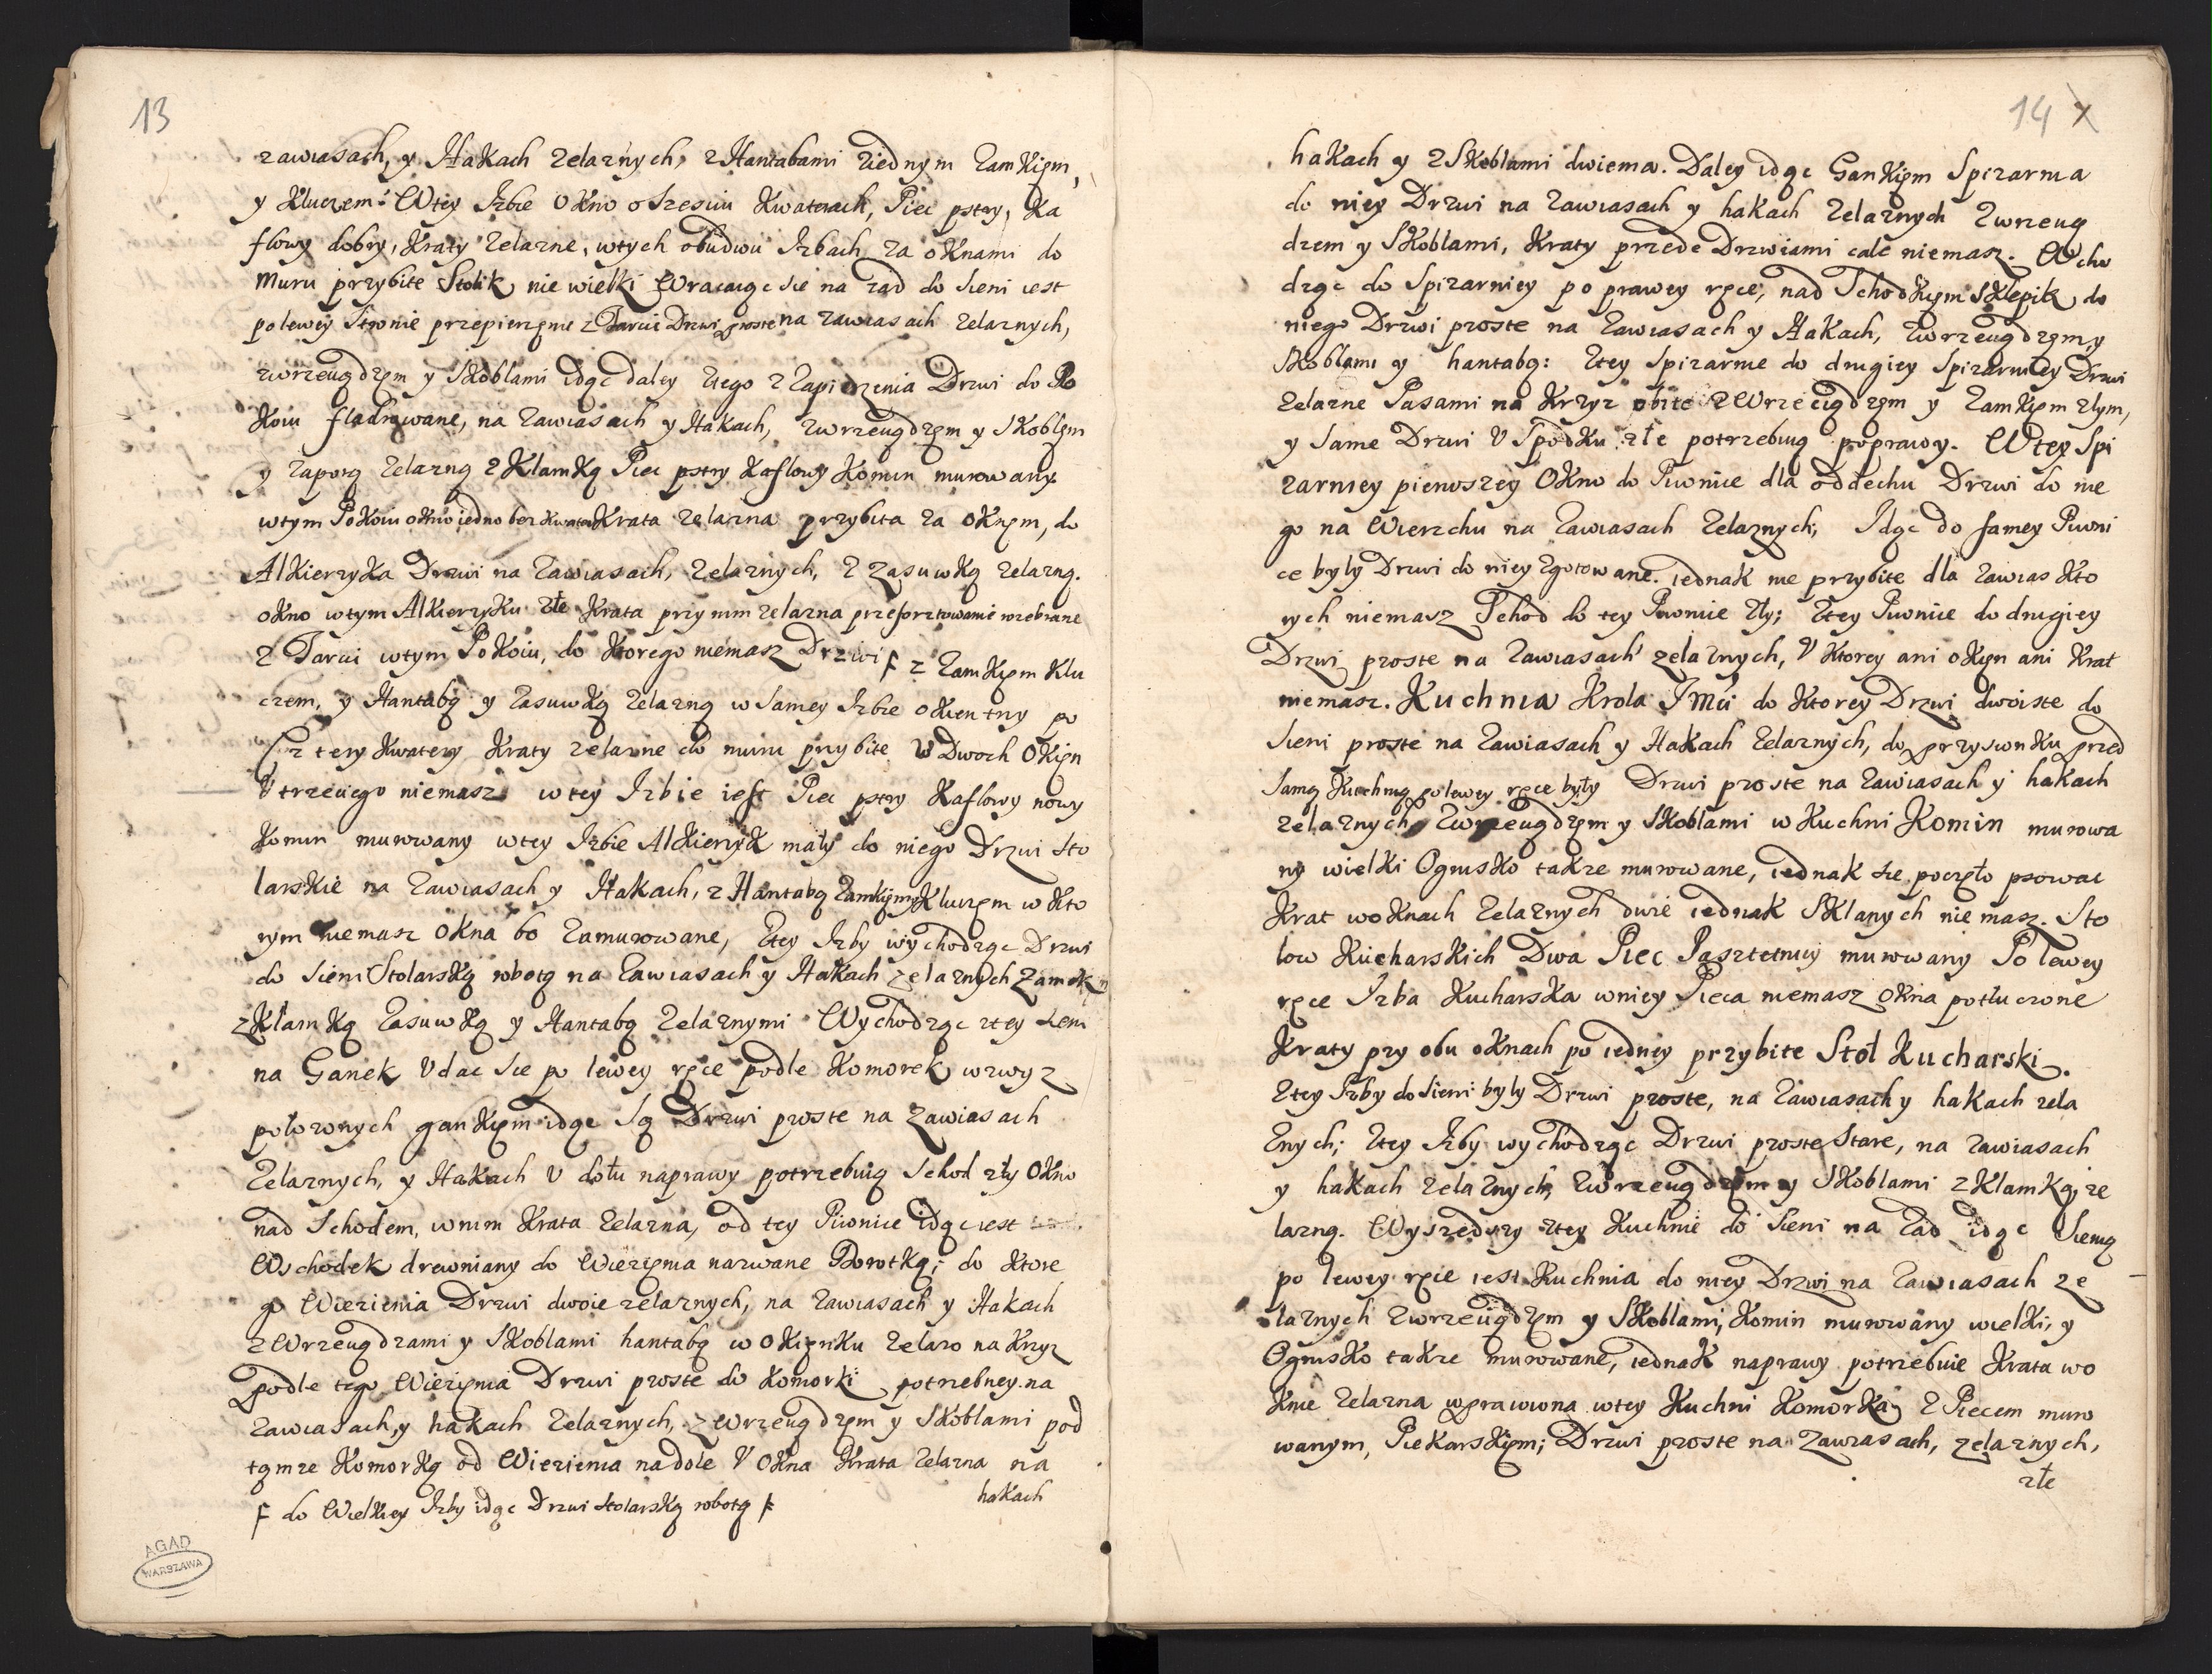 13
zawiasach, y Hakach zelaznych, z Hantabami ziednym Zamkięm,
y Kluczem: Wtey Izbie Okno o szesciu Kwaterach, Piec pstry, Ka
flowy dobry, Kraty zelazne, wtych obudwu Izbach za oknami do
Muru przybite Stolik nie wielki Wracaiąc sie na zad do sieni iest
po lewey Stronie przepierzęnie z Tarcic Drzwi proste na zawiasach zelaznych,
zwrzeciądzęm y Skoblami idąc daley ztego z Drzwi do Po
koiu fladrowane, na Zawiasach y Hakach, zwrzeciądzęm y Skoblęm
y Zaporą zelazną z Klamką Piec pstry Kaflowy Komin murowany
wtym Pokoiu okno iedno bez Kwater Krata zelazna przybita za oknęm, do
Alkierzyka Drzwi na Zawiasach, zelaznych, z zasuwką zelazną.
okno wtym Alkierzyku złe Krata przy nim zelazna przeforztowanie rozebrane
z Tarcic wtym Pokoiu, do Ktorego niemasz Drzwi F z Zamkięm Klu
czem, y Hantabą y Zasuwką zelazną w samey Izbie okien trzy po
cztery Kwatery Kraty zelazne do muru przybite V Dwoch Okięn
V trzeciego niemasz wtey Izbie iest Piec pstry Kaflowy nowy
Komin murowany wtey Izbie Alkierzyk mały do niego Drzwi Sto
larskie na Zawiasach y Hakach, z Hantabą Zamkięm y Kluczęm w Kto
rym niemasz okna bo Zamurowane, Ztey Izby wychodząc Drzwi
do Sieni Stolarską robotą na Zawiasach y Hakach zelaznych Zamek
z Klamką Zasuwką y Hantabą zelaznymi Wychodząc ztey sieni
na Ganek Vdac sie po lewey ręce podle Komorek wzwyz
połozonych gankięm idąc Są Drzwi proste na Zawiasach
Zelaznych, y Hakach V dołu naprawy potrzebuią Schod zły Okno
nad Schodem, wnim Krata zelazna, od tey Piwnice idąc iest
Wschodek drewniany do Wieźięnia nazwane Dorotką; do Ktore
go Wiezienia Drzwi dwoie zelaznych, na zawiasach y Hakach
z Wrzeciądzami y Skoblami hantabą w okięnku zelazo na krzyz
podle tego Wiezięnia Drzwi proste do Komorki potrzebney na
Zawiasach, y hakach zelaznych, z Wrzeciądzęm y Skoblami pod
tąmze Komorką od Wiezienia na dole V Okna Krata zelazna na
hakach
F do Wielkiey Izby idąc Drzwi Stolarską robotą F
AGAD
WARSZAWA
14 X
hakach y z Skoblami dwiema. Daley idąc Gankięm Spizarnia
do niey Drzwi na Zawiasach y hakach zelaznych Zwrzecią
dzem y Skoblami, Kraty przede Drzwiami cale niemasz. Wcho
dząc do Spizarniey po prawey ręce, nad Schodkięm Sklepik do
niego Drzwi proste na Zawiasach y Hakach, Zwrzeciądzęm, y
Skoblami y hantabą: Ztey Spizarnie do drugiey Spizarniey Drzwi
zelazne Pasami na Krzyz obite z Wrzeciądzęm y Zamkięm złym,
y same Drzwi V Spodku złe potrzebuią poprawy. Wtey Spi
zarniey pierwszey Okno do Piwnice dla oddechu Drzwi do nie
go na Wierzchu na Zawiasach zelaznych; Idąc do samey Piwni
ce były Drzwi do niey zgotowane. iednak nie przybite dla zawias Kto
rych niemasz Schod do tey Piwnice zły; Ztey Piwnice do drugiey
Drzwi proste na Zawiasach zelaznych, V Ktorey ani okięn ani Krat
niemasz. Kuchnia Krola Imci do Ktorey Drzwi dwoiste do
Sieni proste na Zawiasach y Hakach zelaznych, do przysionku przed
samą Kuchnią po lewey ręce były Drzwi proste na Zawiasach y hakach
zelaznych Zwrzeciądzęm y Skoblami w Kuchni Komin murowa
ny wielki Ognisko takze murowane, iednak sie poczęło psowac
Krat woknach zelaznych dwie iednak Sklanych niemasz. Sto
low Kucharskich Dwa Piec Pasztetniy murowany Po lewey
ręce Izba Kucharska wniey Pieca niemasz okna potłuczone
Kraty przy obu oknach po iedney przybite Stoł Kucharski.
Ztey Izby do Sieni były Drzwi proste, na Zawiasach y hakach zela
znych; Ztey Izby wychodząc Drzwi proste Stare, na Zawiasach
y hakach zelaznych, Zwrzeciądzęm y Skoblami z Klamką ze
lazną. Wyszedszy ztey Kuchnie do Sieni na Zad idąc Sienią
po lewey ręce iest Kuchnia do niey Drzwi na Zawiasach ze
laznych zwrzeciądzęm y Skoblami, Komin murowany wielki, y
Ognisko takze murowane, iednak naprawy potrzebuie Krata wo
knie zelazna wprawiona wtey Kuchni Komorka z Piecem muro
wanym, Piekarskięm; Drzwi proste na Zawiasach, zelaznych,
złe